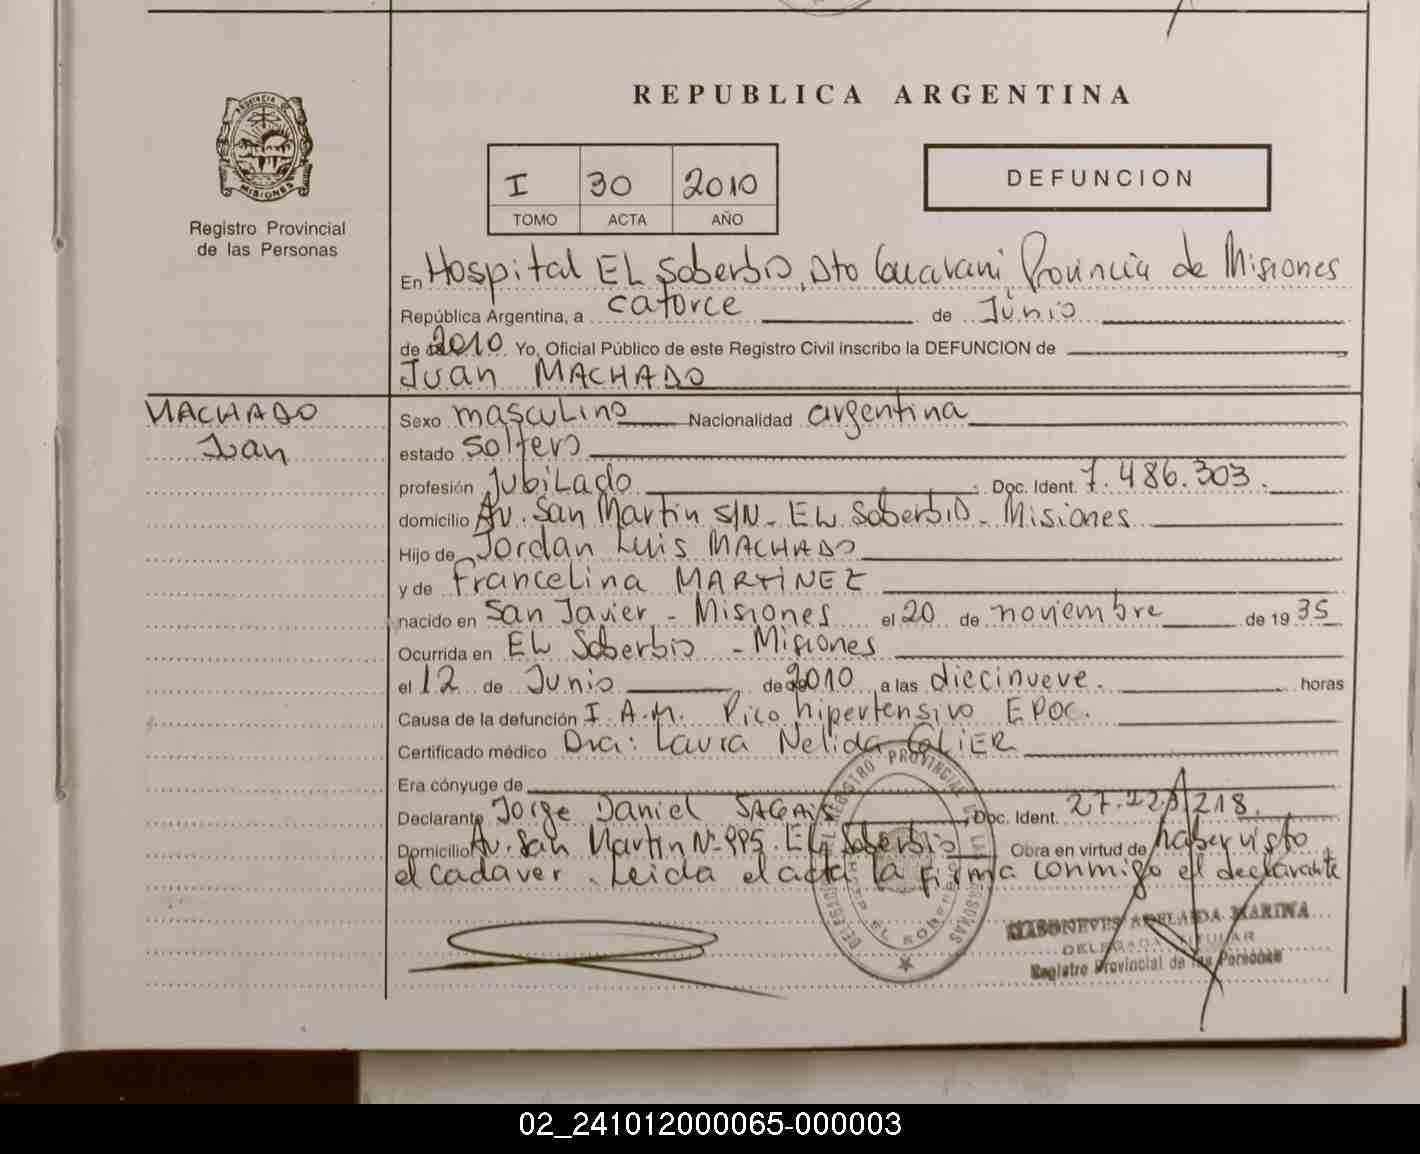 REPUBLICA ARGENTINA
PROVINCIA DE MISIONES
Registro Provincial
de las Personas
I 30 2010
TOMO ACTA AÑO
DEFUNCION
En Hospital EL Soberbio, Dto Guarani, Provincia de Misiones
República Argentina, a catorce de Junio
de 2010 Yo, Oficial Público de este Registro Civil inscribo la DEFUNCION de
Juan MACHADO
MACHADO
Juan
Sexo masculino Nacionalidad argentina
estado soltero
profesión Jubilado Doc. Ident. 7.486.303.
domicilio Av. San Martin S/N - EL Soberbio - Misiones
Hijo de Jordan Luis MACHADO
y de Francelina MARTINEZ
nacido en San Javier - Misiones el 20 de noviembre de 1935
Ocurrida en EL Soberbio - Misiones
el 12 de Junio de 2010 a las diecinueve. horas
Causa de la defunción I.A.M. Pico hipertensivo EPOC.
Certificado médico Dra: Laura Nelida
Era cónyuge de
Declarante Jorge Daniel Doc. Ident.
Domicilio Av. San Martin Nº 995 EL Soberbio Obra en virtud de haber visto
el cadaver. Leida el acta la firma conmigo el declarante
REGISTRO PROVINCIAL DE LAS PERSONAS
EL SOBERBIO
ADELAIDA MARINA
DELEGADA TITULAR
Registro Provincial de las Personas
02_241012000065-000003